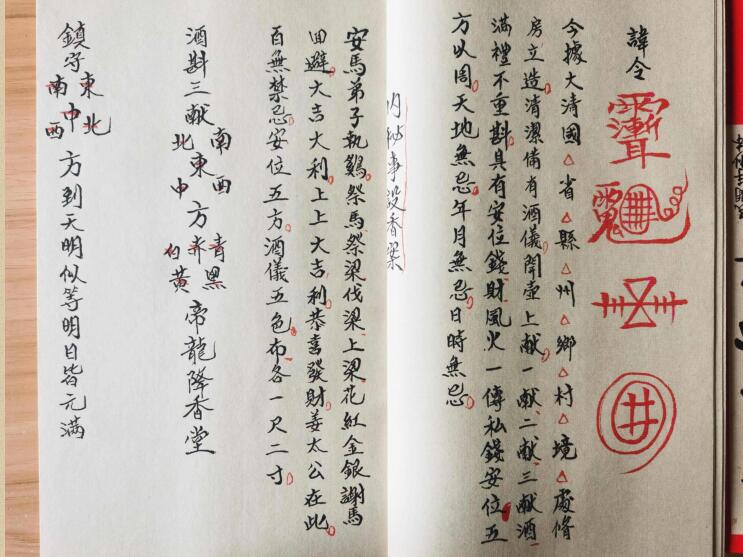 諱令
今據大清國△省△縣△州△鄉△村△境△處脩
房立造清潔備有酒儀開壺上献一献二献三献酒
滿禮不重斟具有安位錢財風火一傳私錢安位五
方以周天地無忌年月無忌日時無忌
内秘事設香案
安馬弟子執鷄祭馬祭梁伐梁上梁花紅金銀謝馬
回避大吉大利上上大吉利恭喜發財姜太公在此
百無禁忌安位五方酒儀五色布各一尺二寸
酒斟三献東南西北中方青黑白黃帝龍降香堂
鎮守東南中西北方到天明似等明日皆元滿